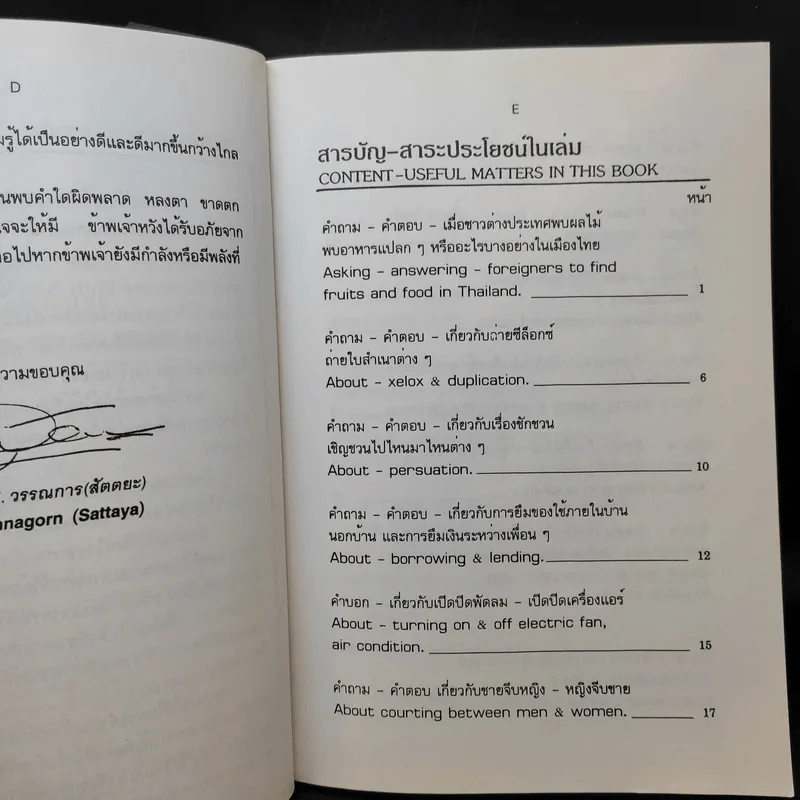 D
รู้ได้เป็นอย่างดีและดีมากขึ้นกว้างไกล
นพบคำใดผิดพลาด หลงตา ขาดตก
ใจจะให้มี ข้าพเจ้าหวังได้รับอภัยจาก
อไปหากข้าพเจ้ายังมีกำลังหรือมีพลังที่
วามขอบคุณ
. วรรณการ(สัตตยะ)
nagorn (Sattaya)
E
สารบัญ-สาระประโยชน์ในเล่ม
CONTENT-USEFUL MATTERS IN THIS BOOK
หน้า
คำถาม - คำตอบ - เมื่อชาวต่างประเทศพบผลไม้
พบอาหารแปลก ๆ หรืออะไรบางอย่างในเมืองไทย
Asking - answering - foreigners to find
fruits and food in Thailand. 1
คำถาม - คำตอบ - เกี่ยวกับถ่ายซีล็อกซ์
ถ่ายใบสำเนาต่าง ๆ
About - xelox & duplication. 6
คำถาม - คำตอบ - เกี่ยวกับเรื่องชักชวน
เชิญชวนไปไหนมาไหนต่าง ๆ
About - persuation. 10
คำถาม - คำตอบ - เกี่ยวกับการยืมของใช้ภายในบ้าน
นอกบ้าน และการยืมเงินระหว่างเพื่อน ๆ
About - borrowing & lending. 12
คำบอก - เกี่ยวกับเปิดปิดพัดลม - เปิดปิดเครื่องแอร์
About - turning on & off electric fan,
air condition. 15
คำถาม - คำตอบ เกี่ยวกับชายจีบหญิง - หญิงจีบชาย
About courting between men & women. 17